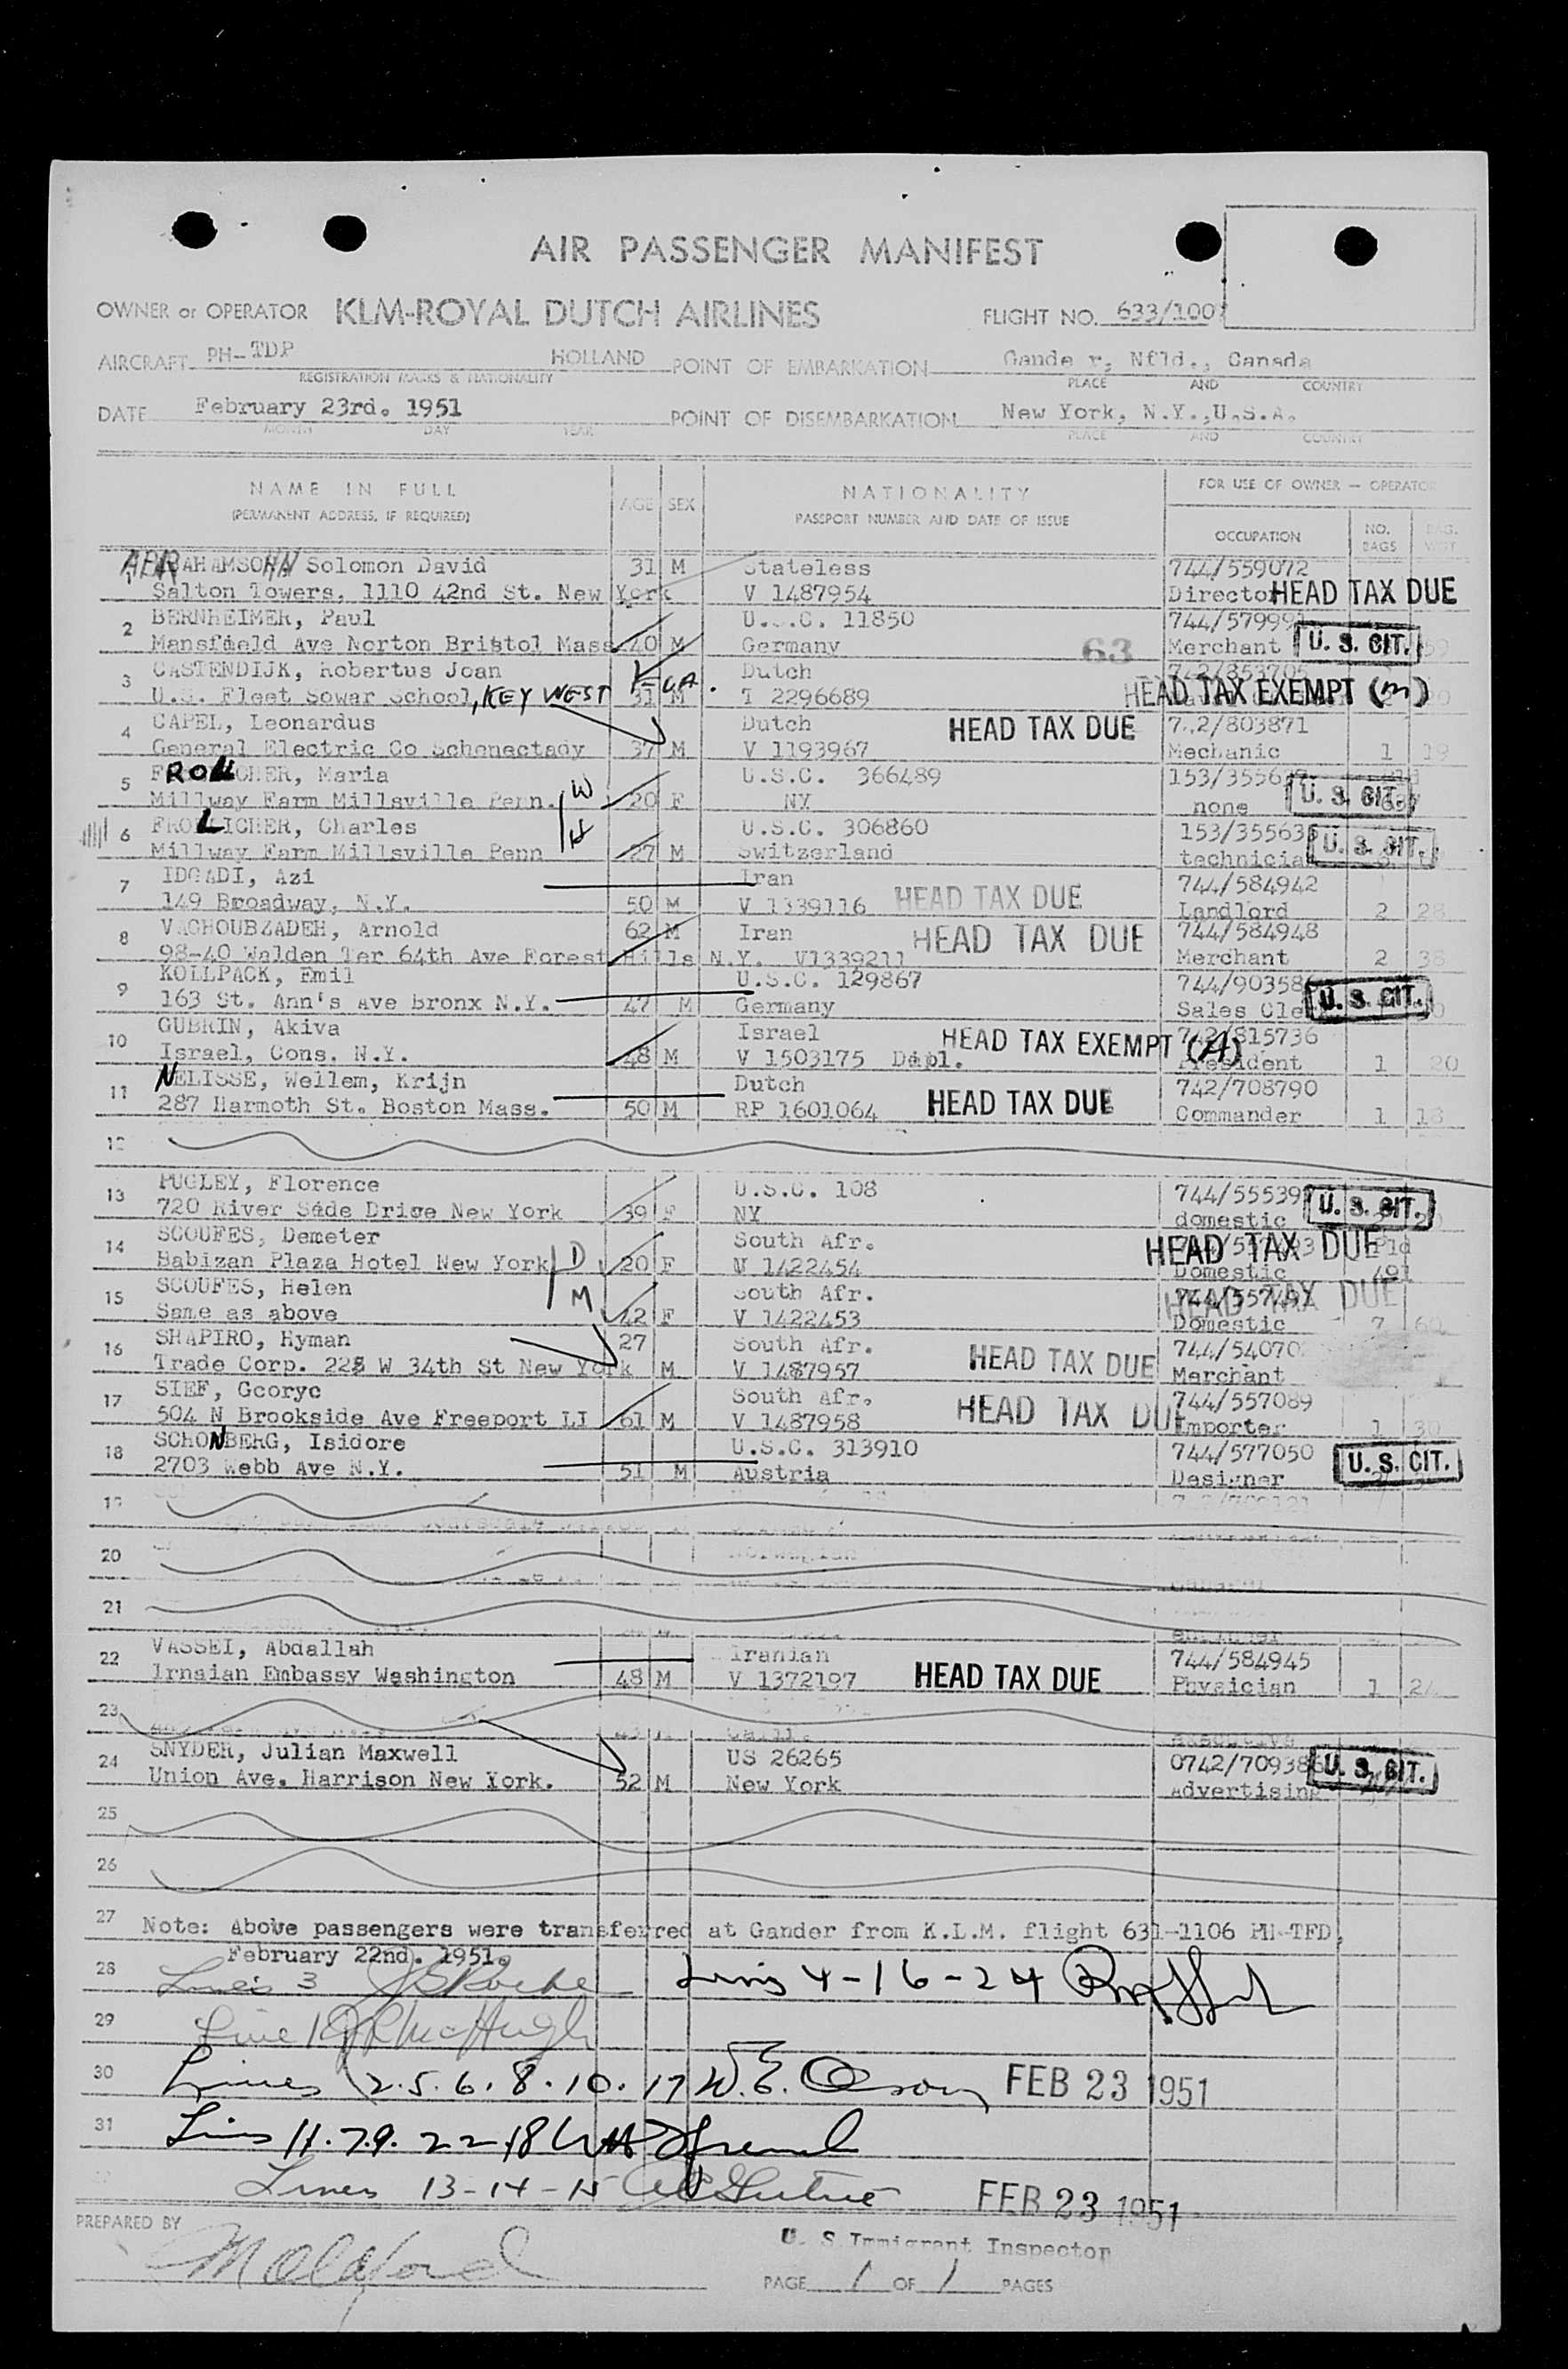 AIR PASSENGER MANIFEST
OWNER or OPERATOR KLM-ROYAL DUTCH AIRLINES FLIGHT NO. 633/100
AIRCRAFT PH-TDP HOLLAND POINT OF EMBARKATION Gande r, Nfld., Canada
REGISTRATION MARKS & NATIONALITY PLACE AND COUNTRY
DATE February 23rd. 1951 POINT OF DISEMBARKATION New York, N.Y.,U.S.A.
MONTH DAY YEAR PLACE AND COUNTRY
NAME IN FULL AGE SEX NATIONALITY FOR USE OF OWNER — OPERATOR
(PERMANENT ADDRESS, IF REQUIRED) PASSPORT NUMBER AND DATE OF ISSUE
OCCUPATION NO. BAGS BAG. WGT.
ABRAHAMSOHN Solomon David 31 M Stateless 744/559072
1 Salton Towers, 1110 42nd St. New York V 1487954 Director HEAD TAX DUE
2 BERNHEIMER, Paul U.S.C. 11850
Mansfield Ave Norton Bristol Mass 40 M Germany 63 Merchant U. S. CIT.
3 CASTENDIJK, Robertus Joan Dutch
U.S. Fleet Sowar School, KEY WEST 31 M T 2296689 HEAD TAX EXEMPT (m)
4 CAPEL, Leonardus Dutch HEAD TAX DUE 742/803871
General Electric Co Schenectady 37 M V 1193967 Mechanic 1 19
5 Maria U.S.C. 366489
Millway Farm Millsville Penn. W 20 F NY none U. S. CIT.
6 FROLICHER, Charles U.S.C. 306860 153/355635
Millway Farm Millsville Penn H 27 M Switzerland technician U. S. CIT.
7 IDGADI, Azi Iran 744/584942
149 Broadway, N.Y. 50 M V 1339116 HEAD TAX DUE Landlord 2 28
8 VAGHOUBZADEH, Arnold 62 M Iran HEAD TAX DUE 744/584948
98-40 Walden Ter 64th Ave Forest Hills N.Y. V1339211 Merchant 2 38
9 KOLLPACK, Emil U.S.C. 129867 744/90358
163 St. Ann's Ave Bronx N.Y. 47 M Germany Sales Cle U. S. CIT.
10 GUBRIN, Akiva Israel HEAD TAX EXEMPT (A) 742/815736
Israel, Cons. N.Y. 48 M V 1503175 Dipl. President 1 20
11 NELISSE, Wellem, Krijn Dutch 742/708790
287 Harmoth St. Boston Mass. 50 M RP 1601064 HEAD TAX DUE Commander 1 18
12
13 PUGLEY, Florence U.S.C. 108 744/55539
720 River Side Drive New York 39 F NY domestic U. S. CIT.
14 SCOUFES, Demeter South Afr. HEAD TAX DUE
Babizan Plaza Hotel New York D 20 F V 1422454 Domestic
15 SCOUFES, Helen M South Afr. HEAD TAX DUE
Same as above 42 F V 1422453 Domestic 7 60
16 SHAPIRO, Hyman 27 South Afr. 744/54070
Trade Corp. 225 W 34th St New York M V 1487957 HEAD TAX DUE Merchant
17 SIEF, Georyc South Afr. 744/557089
504 N Brookside Ave Freeport LI 61 M V 1487958 HEAD TAX DUE Importer 1 30
18 SCHONBERG, Isidore U.S.C. 313910 744/577050
2703 Webb Ave N.Y. 51 M Austria Designer U. S. CIT.
19
20 Norwegian
21
22 VASSEI, Abdallah Iranian 744/584945
Irnaian Embassy Washington 48 M V 1372197 HEAD TAX DUE Physician 1 24
23
24 SNYDER, Julian Maxwell US 26265 0742/70938
Union Ave. Harrison New York. 52 M New York Advertising U. S. CIT.
25
26
27 Note: Above passengers were transferred at Gander from K.L.M. flight 631-1106 PH-TFD,
February 22nd. 1951.
28 Lines 3 Lines 4-16-24
29 Line 1 McHugh
30 Lines 2.5.6.8.10.17 W.E. Olson FEB 23 1951
31 Lines 11.7.9.22.18
Lines 13-14-15 FEB 23 1951
PREPARED BY
U. S. Immigrant Inspector
PAGE 1 OF 1 PAGES